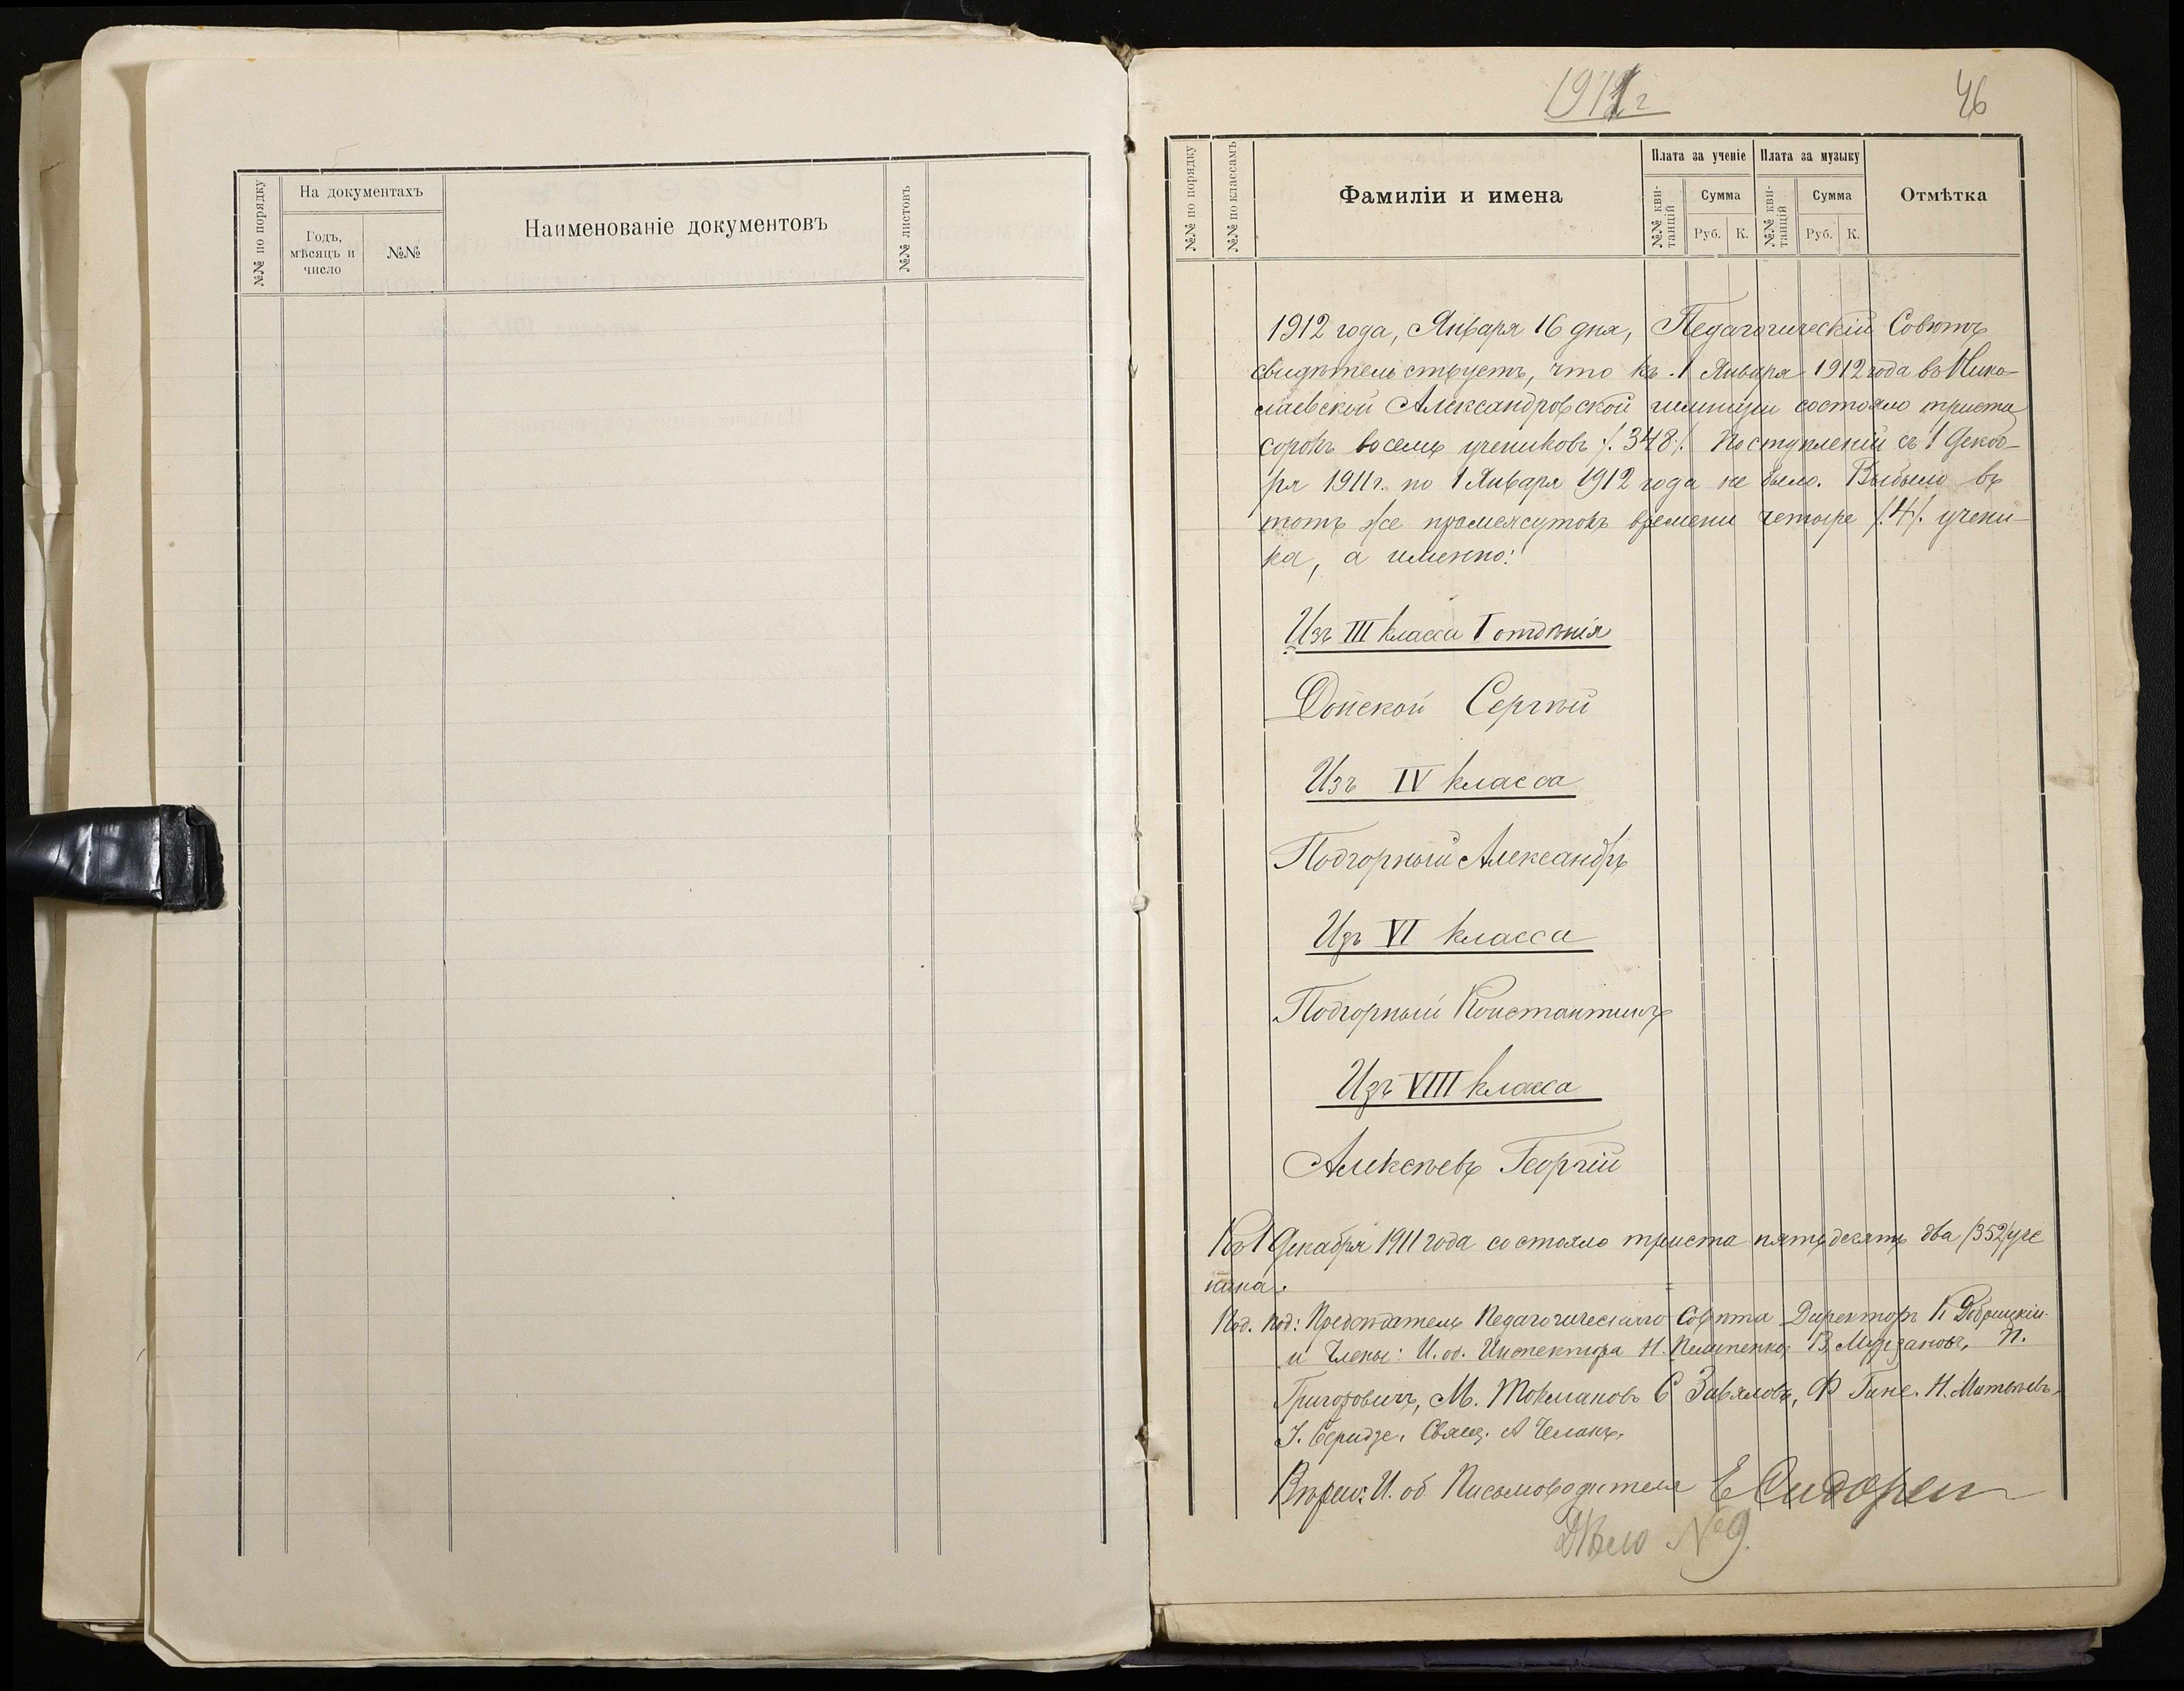 №№ по порядку
На документахъ
Годъ, мѣсяцъ и число
№№
Наименованіе документовъ
№№ листовъ
46
№№ по порядку
№№ по классамъ
Фамиліи и имена
Плата за ученіе
№№ квитанцій
Сумма
Руб.
К.
Плата за музыку
№№ квитанцій
Сумма
Руб.
К.
Отмѣтка
1912 года, Января 16 дня, Педагогическій Совѣтъ
свидѣтельствуетъ, что къ 1 Января 1912 года въ Нико-
лаевской Александровской гимназіи состояло триста
сорокъ восемь учениковъ /.348/. Поступленій съ 1 Декаб-
ря 1911 г. по 1 Января 1912 года не было. Выбыло въ
тотъ же промежутокъ времени четыре /.4/. учени-
ка, а именно:
Изъ III класса I отдѣнія
Донской Сергѣй
Изъ IV класса
Подгорный Александръ
Изъ VI класса
Подгорный Константинъ
Изъ VIII класса
Алексѣевъ Георгій
Къ 1 Декабря 1911 года состояло триста пятьдесятъ два /352/ уче
ника.
Под. под: Предсѣдатель Педагогическаго Совѣта Директоръ К
и Члены: И. об. Инспектора Н. В. П.
Григоровичъ, М. Токмаковъ С Завяловъ, Ф Гине. Н. Матвѣевъ,
I. Беридзе. Свящ. А
Вѣрно: И. об Письмоводителя Е Сидорен
Дѣло № 9.